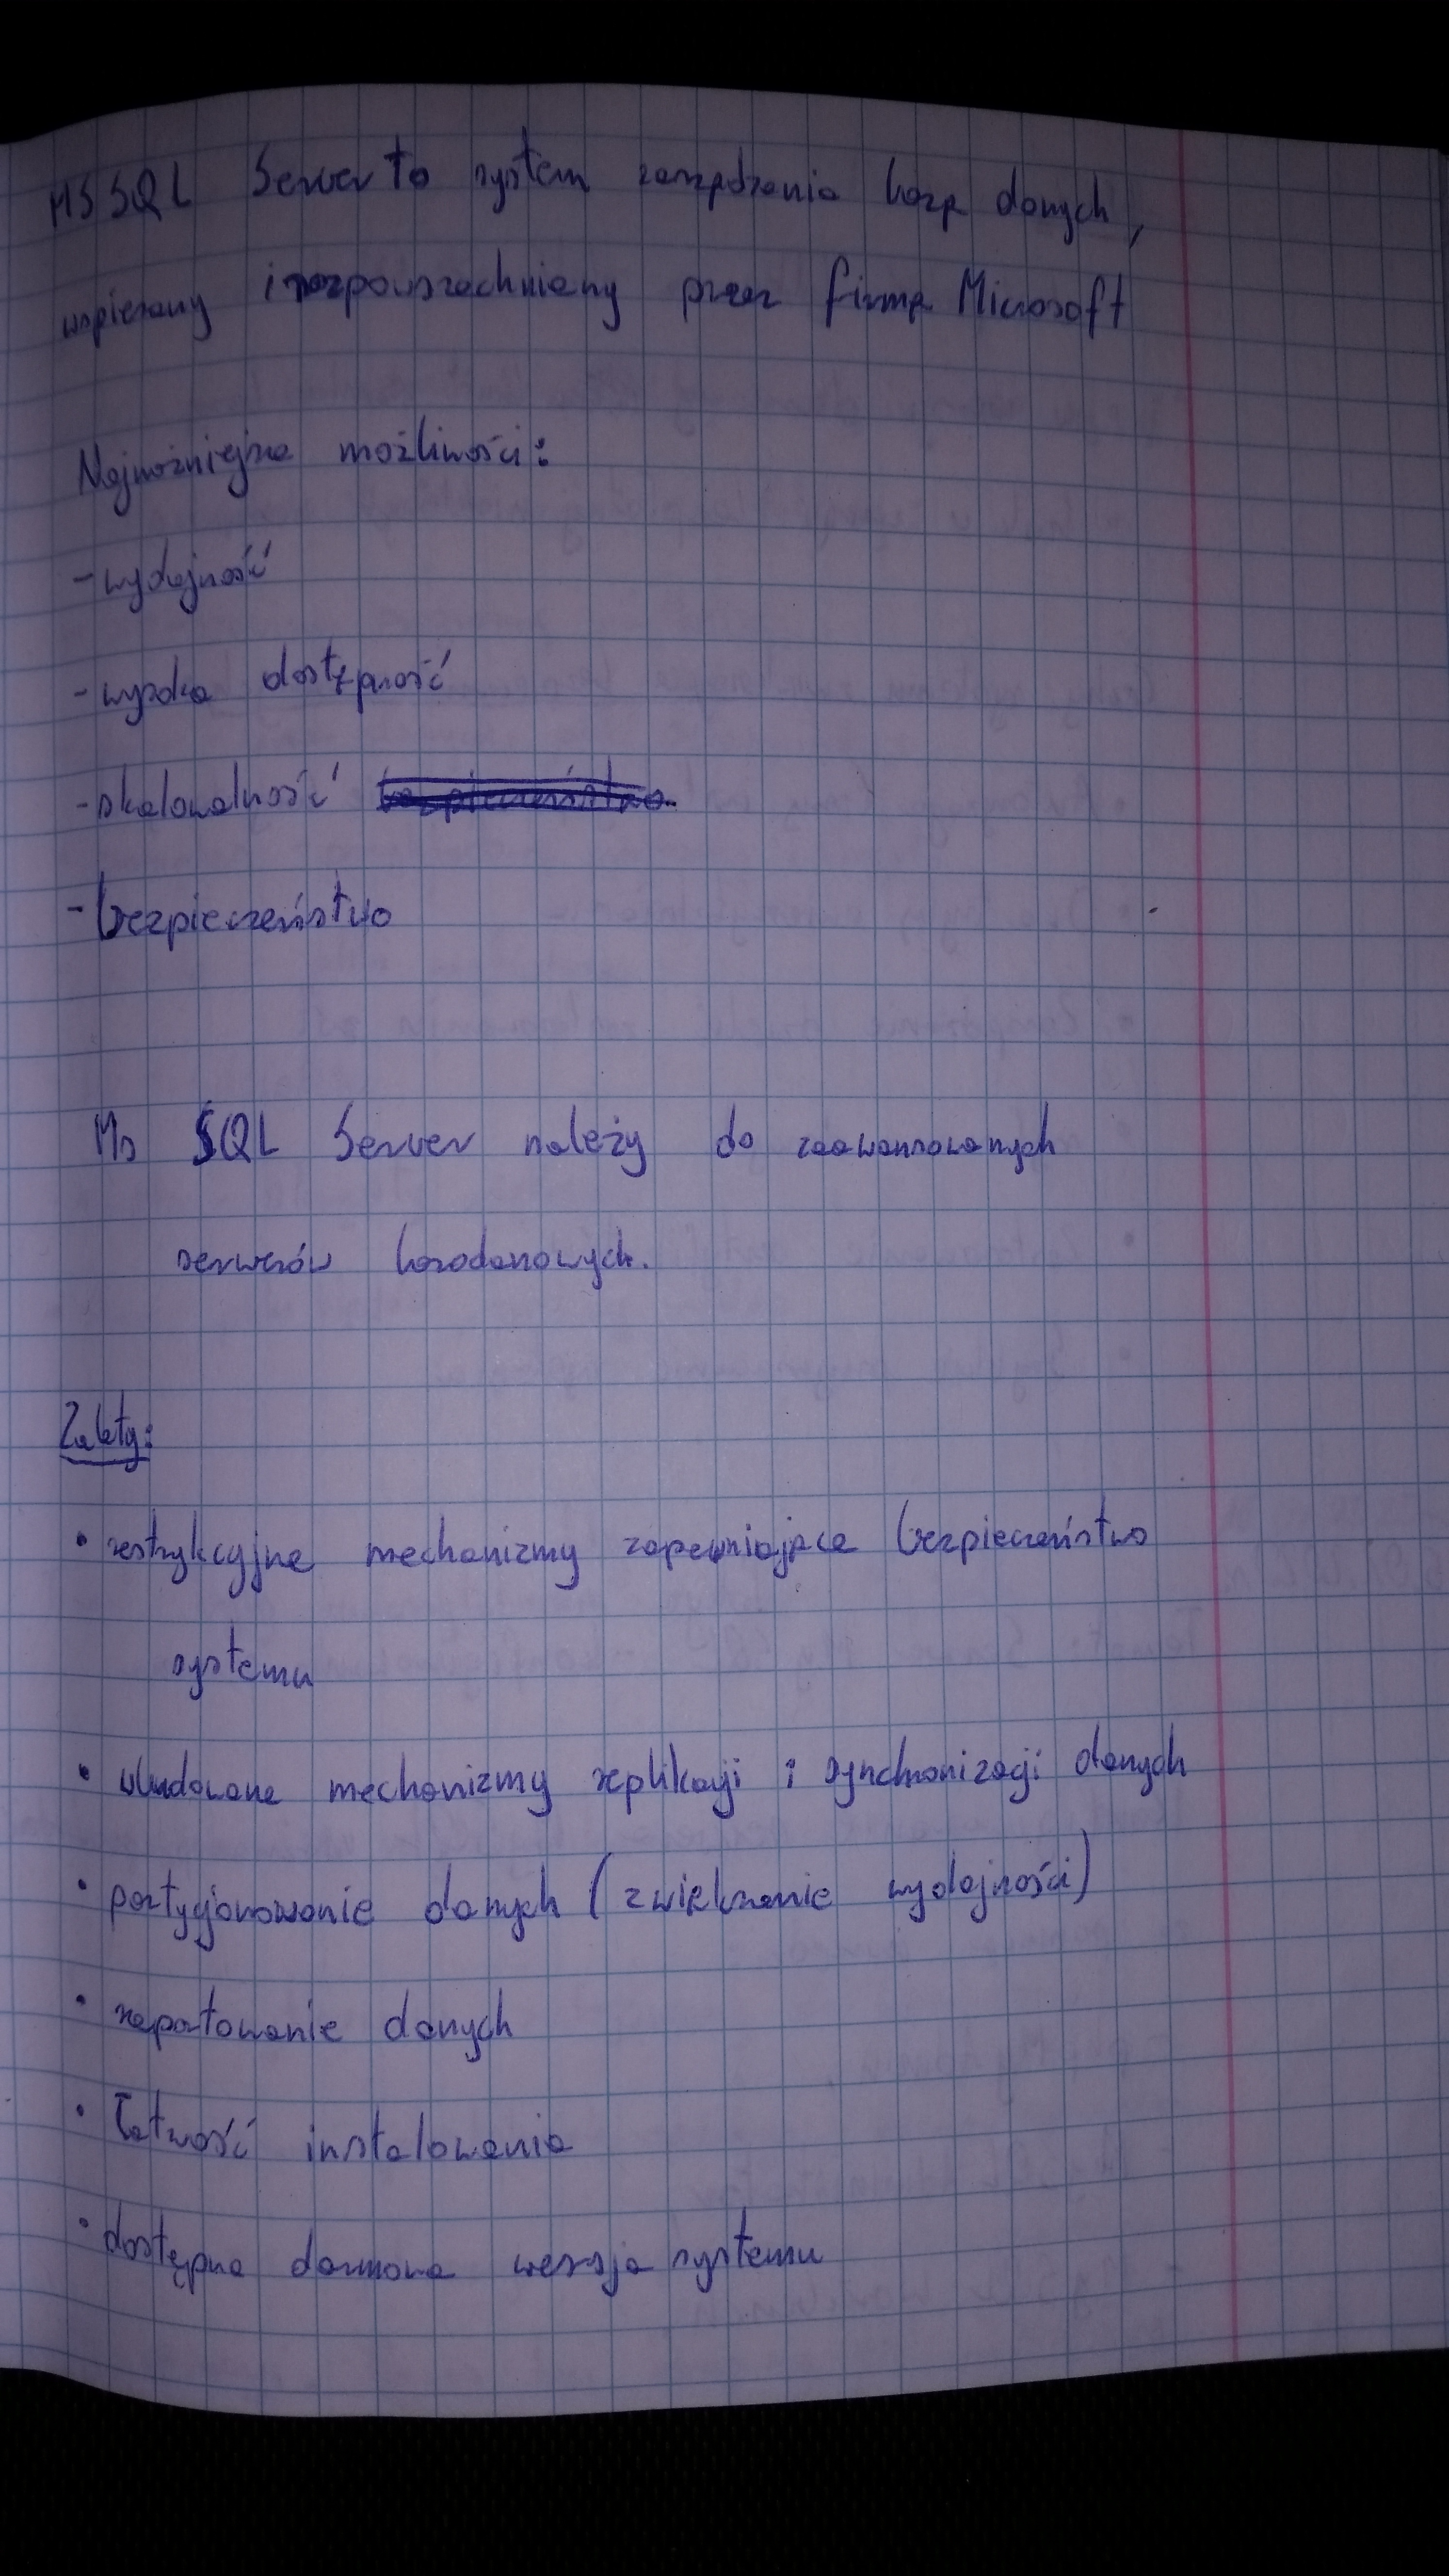 MS SQL Server to system zarządzania bazą danych,
wspierany i rozpowszechniany przez firmę Microsoft
Najważniejsze możliwości:
- wydajność
- wysoka dostępność
- skalowalność bezpieczeństwo
- bezpieczeństwo
Ms SQL Server należy do zaawansowanych
serwerów bazodanowych.
Zalety:
• restrykcyjne mechanizmy zapewniające bezpieczeństwo
systemu
• wbudowane mechanizmy replikacji i synchronizacji danych
• partycjonowanie danych (zwiększenie wydajności)
• raportowanie danych
• Łatwość instalowania
• dostępna darmowa wersja systemu